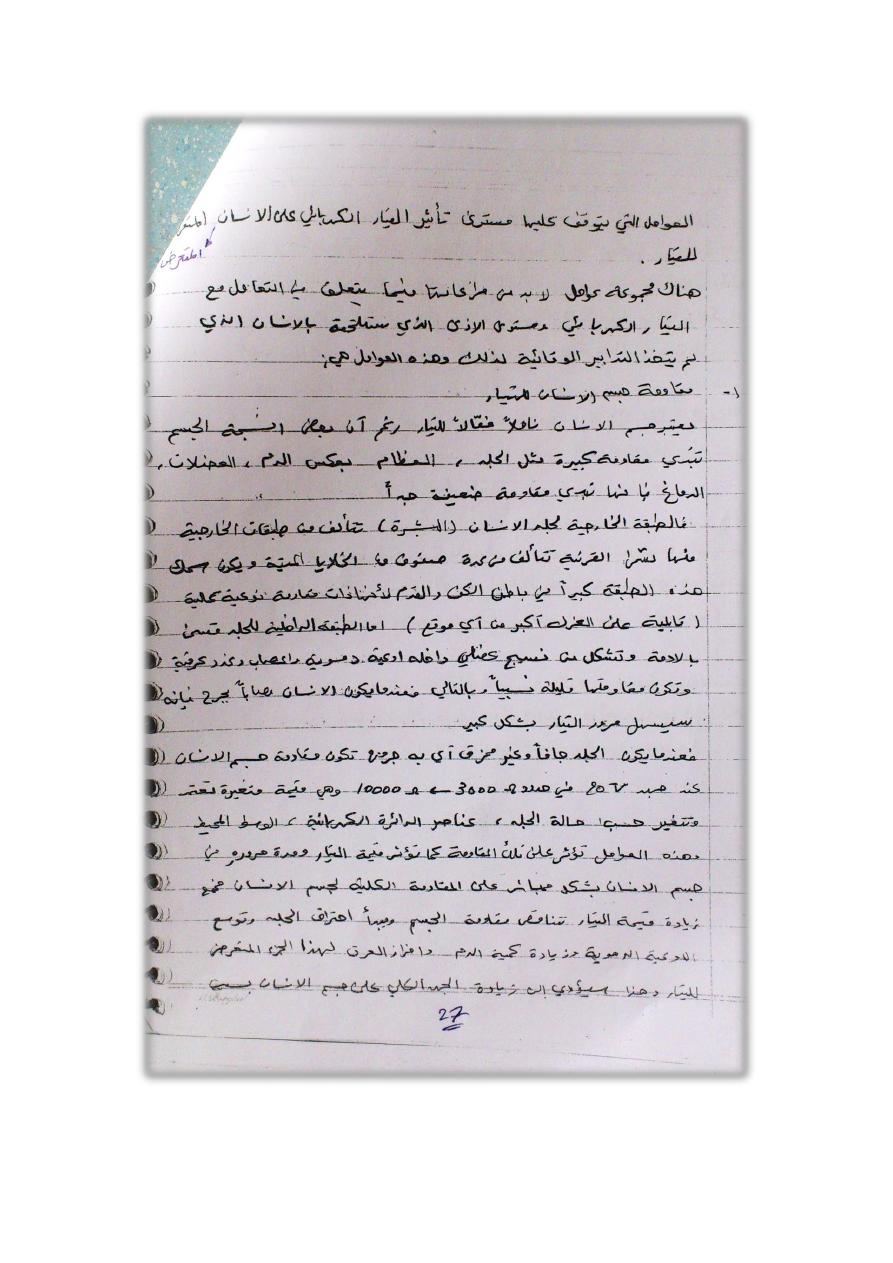 العوامل التي يتوقف عليها مستوى تأثير التيار الكهربائي على الانسان
المتعرض
للتيار .
هناك مجموعة عوامل لابد من مراعاتها فيما يتعلق في التعامل مع
التيار الكهربائي ومستوى الاذى الذي ستلحقه بالانسان الذي
لم يتخذ التدابير الوقائية لذلك وهذه العوامل هي:
١- مقاومة جسم الانسان للتيار
يعتبر جسم الانسان ناقلاً فعّالاً للتيار رغم أن بعض انسجة الجسم
تبدي مقاومة كبيرة مثل الجلد ، العظام بعكس الدم ، العضلات ،
الدماغ فإنها تبدي مقاومة ضعيفة جداً
فالطبقة الخارجية لجلد الانسان (البشرة) تتألف من طبقات الخارجية
منها تتألف من عدة صفوف من الخلايا الميتة ويكون سمك
هذه الطبقة كبيراً في باطن الكف والقدم لأنها ذات مقاومة نوعية عالية
( قابلية على العزل أكبر من أي موقع ) اما الطبقة الداخلية للجلد فتسمى
بالادمة وتتشكل من نسيج عضلي داخله اوعية دموية واعصاب وغدد عرقية
وتكون مقاومتها قليلة نسبياً وبالتالي فعندما يكون الانسان مصاباً بجرح فإنه
سيسهل مرور التيار بشكل كبير
فعندما يكون الجلد جافاً وغير ممزق أي به جروح تكون مقاومة جسم الانسان
عند جهد في حدود 3000 Ω ← 10000 Ω وهي قيمة متغيرة تعتمد
وتتغير حسب: حالة الجلد ، عناصر الدائرة الكهربائية ، الوسط المحيط
وهذه العوامل تؤثر على تلك المقاومة كما تؤثر قيمة التيار ومدة مروره في
جسم الانسان بشكل مباشر على المقاومة الكلية لجسم الانسان فمع
زيادة قيمة التيار تتناقص مقاومة الجسم ويبدأ احتراق الجلد وتوسع
الاوعية الدموية وزيادة كمية الدم وافراز العرق لهذا الجزء المتعرض
للتيار وهذا سيؤدي الى زيادة الجهد الكلي على جسم الانسان بسبب
27